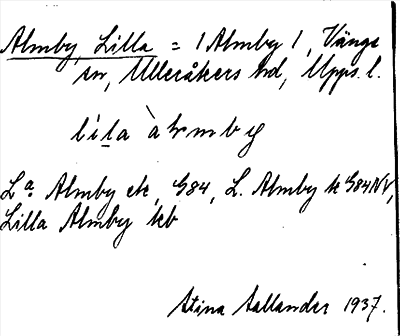 Almby, Lilla = 1 Almby 1, Vänge
sn, Ulleråkers hd, Upps. l.
lìla àrmby
La. Almby ek, G84, L. Almby tk G84NV,
Lilla Almby kb
Stina 1937.